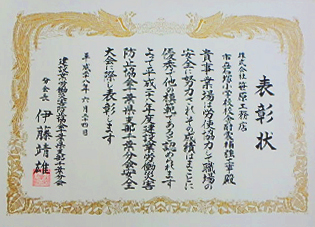 表彰状
株式会社 笹原工務店
市立都小学校校舎耐震補強工事 殿
貴事業場は労使協力して職場の
安全に努力されその成績はまことに
優秀で他の模範であると認められます
よって平成二十八年度建設業労働災害
防止協会千葉県支部千葉分会安全
大会に際し表彰します
平成二十八年六月二十四日
建設業労働災害防止協会千葉県支部千葉分会
分会長 伊藤靖雄